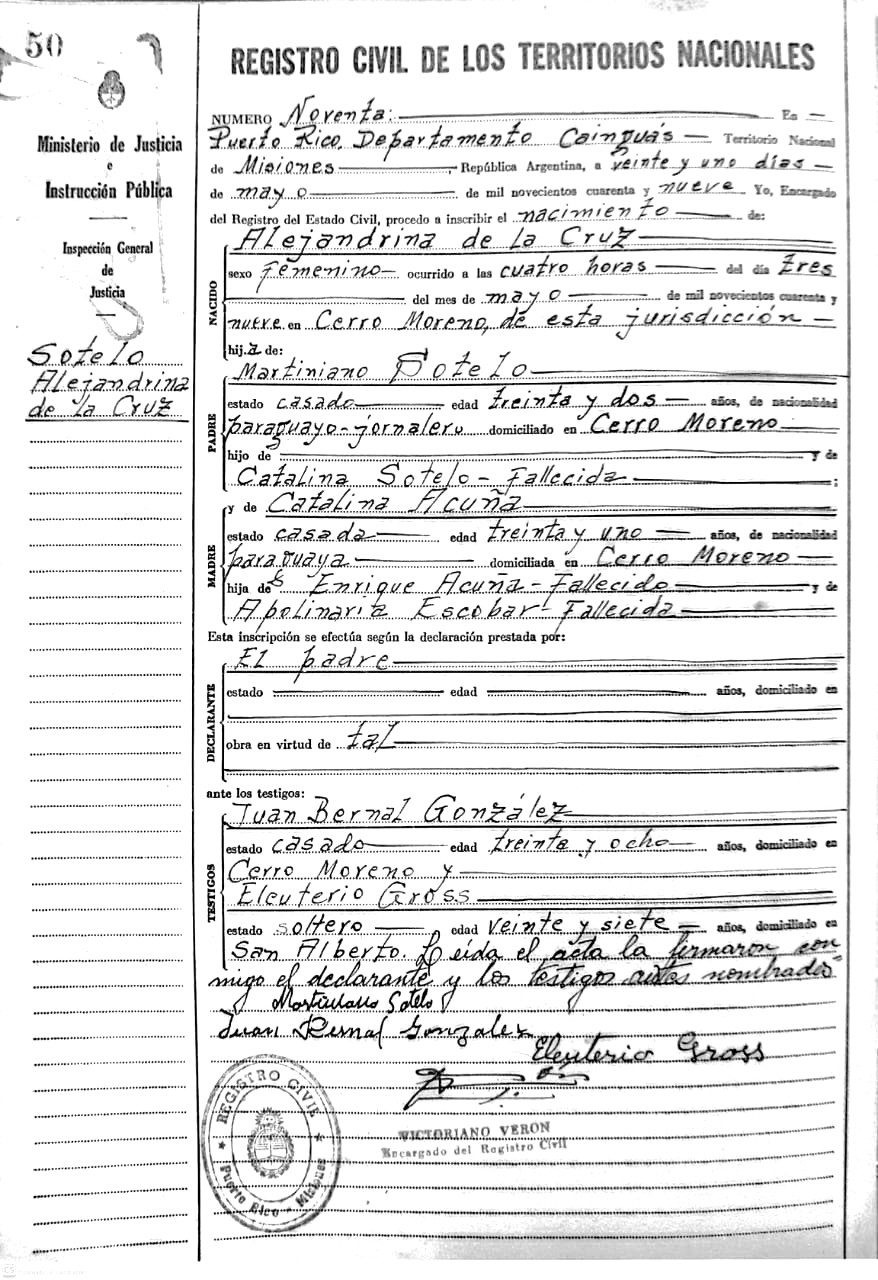 50
Ministerio de Justicia
e
Instrucción Pública
Inspección General
de
Justicia
Sotelo
Alejandrina
de la Cruz
REGISTRO CIVIL DE LOS TERRITORIOS NACIONALES
NUMERO Noventa: En
Puerto Rico, Departamento Cainguás Territorio Nacional
de Misiones, República Argentina, a veinte y uno días
de mayo de mil novecientos cuarenta y nueve Yo, Encargado
del Registro del Estado Civil, procedo a inscribir el nacimiento de:
NACIDO
Alejandrina de la Cruz
sexo femenino ocurrido a las cuatro horas del día tres
del mes de mayo de mil novecientos cuarenta y
nueve en Cerro Moreno, de esta jurisdicción
hij.a de:
PADRE
Martiniano Sotelo
estado casado edad treinta y dos años, de nacionalidad
paraguayo-jornalero domiciliado en Cerro Moreno
hijo de y de
Catalina Sotelo - Fallecida ;
MADRE
y de Catalina Acuña
estado casada edad treinta y uno años, de nacionalidad
paraguaya domiciliada en Cerro Moreno
hija de Enrique Acuña - Fallecido y de
Apolinaria Escobar - Fallecida
Esta inscripción se efectúa según la declaración prestada por:
DECLARANTE
El padre
estado edad años, domiciliado en
obra en virtud de tal
ante los testigos:
TESTIGOS
Juan Bernal González
estado casado edad treinta y ocho años, domiciliado en
Cerro Moreno y
Eleuterio Gross
estado soltero edad veinte y siete años, domiciliado en
San Alberto. Leída el acta la firmaron con
migo el declarante y los testigos antes nombrados
Martiniano Sotelo
Juan Bernal Gonzalez
Eleuterio Gross
VICTORIANO VERON
Encargado del Registro Civil
REGISTRO CIVIL
Puerto Rico - Misiones
CS